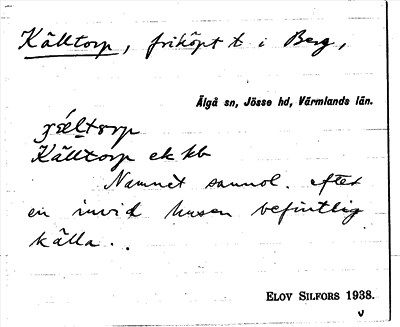 Källtorp, friköpt t i Berg,
Älgå sn, Jösse hd, Värmlands län.
Källtorp ek kb
Namnet sannol. efter
en invid husen befintlig
källa.
ELOV SILFORS 1938.
v